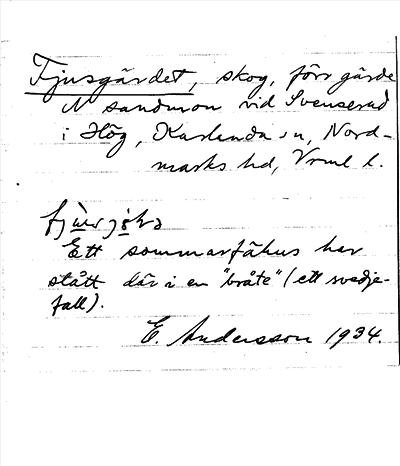 Fjusgärdet, skog, förr gärde
N sandmon vid Svenserud
i Hög, Karlanda sn, Nord-
marks hd, Vrml l.
Ett sommarfähus har
stått där i en "bråte" (ett svedje-
fall).
E. Andersson 1934.